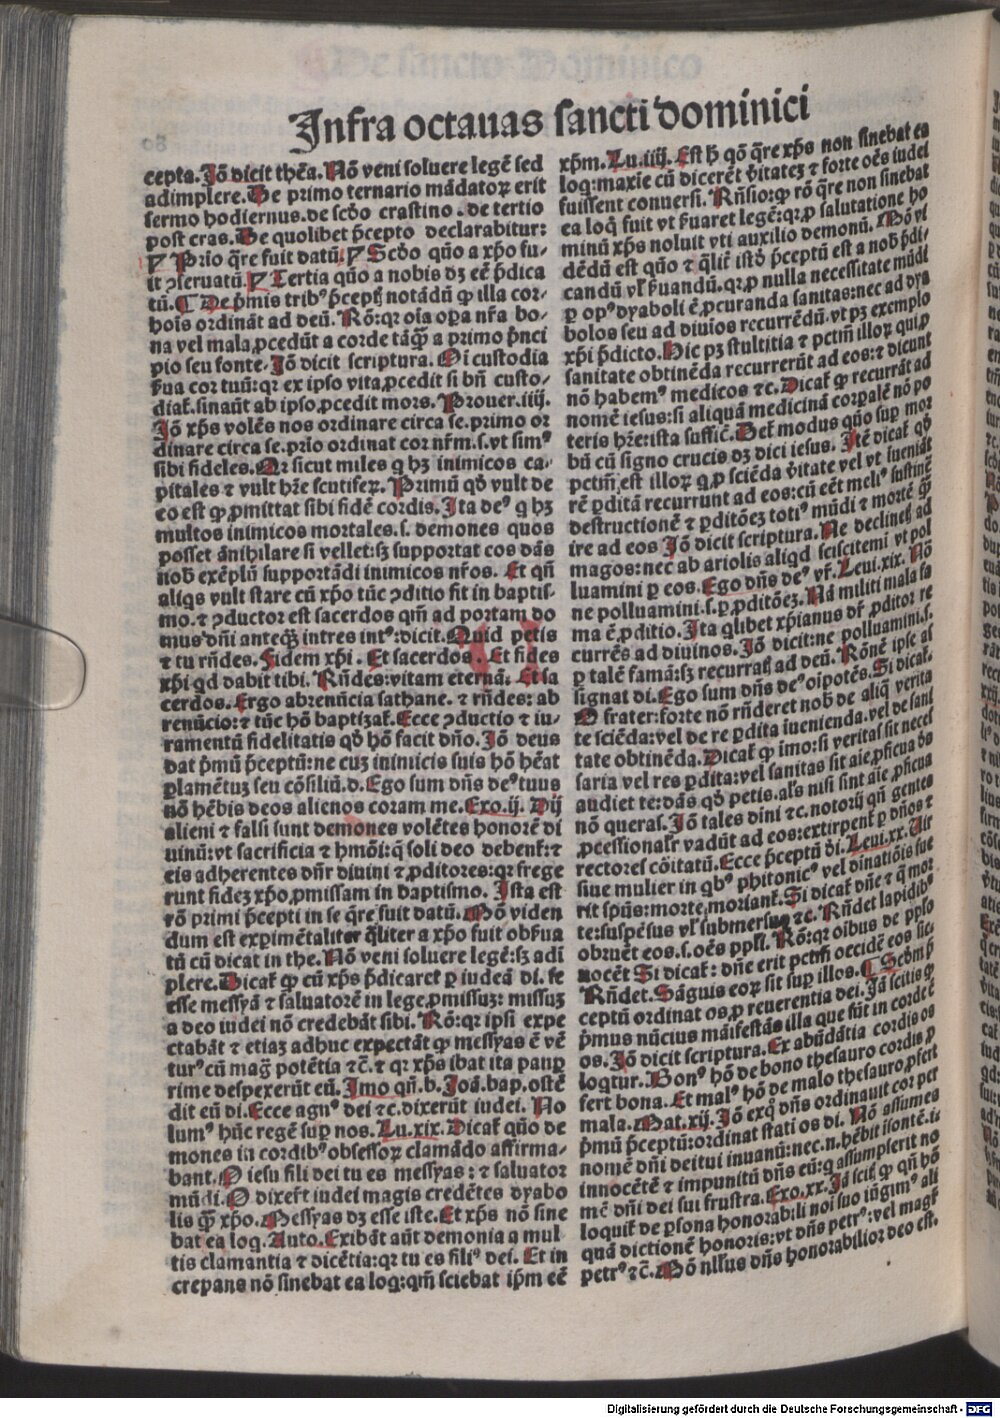 Infra octauas sancti dominici
cepta. Jō dicit thēa. Nō veni soluere legē sed
adimplere. De primo ternario mādatoꝝ erit
sermo hodiernus. de scďo crastino. de tertio
post cras. De quolibet p̄cepto declarabitur:
Prīo q̄re fuit datū. Scďo quō a xp̄o fu-
it ꝯseruatū. Tertia quō a nobis dꝫ eē p̄dica
tū. De p̄mis tribꝰ p̄cept; notādū ꝙ illa cor-
hoīs ordināt ad deū. Rō: qꝛ oīa oꝑa nr̄a bo-
na vel mala ꝓcedūt a corde tāꝙ̄ a primo p̄nci
pio seu fonte. Jō dicit scriptura. Oī custodia
ẜua cor tuū: qꝛ ex ipso vita ꝓcedit si bn̄ custo-
diat̄. sinaūt ab ipso ꝓcedit mors. Prouer. iiij.
Jō xp̄s volēs nos ordinare circa se. primo or
dinare circa se. prīo ordinat cor nr̄m. s. vt simꝰ
sibi fideles. Qꝛ sicut miles q hꝫ inimicos ca-
pitales ⁊ vult hr̄e scutiferꝝ. Primū qď vult de
eo est ꝙ ꝓmittat sibi fidē cordis. Ita deꝰ q hꝫ
multos inimicos mortales. s. demones quos
posset ānihilare si vellet: sꝫ supportat eos dās
nob̄ exēplū supportādi inimicos nr̄os. Et qn̄
aliqs vult stare cū xp̄o tūc ꝯditio fit in baptis-
mo. ⁊ ꝯductor est sacerdos qm̄ ad portam do
mus dn̄i anteqꝫ intres intꝰ: dicit. Quid petis
⁊ tu rn̄des. Fidem xp̄i. Et sacerdos. Et fides
xp̄i qd dabit tibi. Rn̄des: vitam eternā. Et sa
cerdos. Ergo abrenūcia sathane. ⁊ rn̄des: ab
renūcio: ⁊ tūc hō baptizat̄. Ecce ꝯductio ⁊ iu-
ramentū fidelitatis qď hō facit dn̄o. Jō deus
dat p̄mū p̄ceptū: ne cuꝫ inimicis suis hō hēat
ꝑlamētuꝫ seu cōsiliū. d. Ego sum dn̄s deꝰ tuus
nō hēbis deos alienos coram me. Exo. ij. Dij
alieni ⁊ falsi sunt demones volētes honorē di
uinū: vt sacrificia ⁊ hm̄ōi: q̄ soli deo debent̄: ⁊
eis adherentes dn̄r diuini ⁊ ꝓditores: qꝛ frege
runt fideꝫ xp̄o ꝓmissam in baptismo. Ista est
rō primi p̄cepti in se q̄re fuit datū. Mō viden
dum est exꝑimētaliter q̄liter a xp̄o fuit obẜua
tū cū dicat in the. Nō veni soluere legē: sꝫ adī
plere. Dicat̄ ꝙ cū xp̄s p̄dicaret ꝑ iudeā di. se
esse messyā ⁊ saluatorē in lege ꝓmissuꝫ: missuꝫ
a deo iudei nō credebāt sibi. Rō: qꝛ ipsi expe
ctabāt ⁊ etiaꝫ adhuc expectāt ꝙ messyas ē vē
turꝰ cū maḡ potētia ⁊c̄. ⁊ qꝛ xp̄s ibat ita pauꝑ
rime despexerūt eū. Imo qn̄. b. Joā. bap. ostē
dit eū di. Ecce agnꝰ dei ⁊c. dixerūt iudei. No
lumꝰ hūc regē suꝑ nos. Lu. xix. Dicat̄ quō de
mones in cordibꝰ obsessoꝝ clamādo affirma-
bant. O iesu fili dei tu es messyas: ⁊ saluator
mūdi. O dixer̄t iudei magis credētes dyabo
lis ꝙ̄ xp̄o. Messyas dꝫ esse iste. Et xp̄s nō sine
bat ea loq. Exibāt aūt demonia a mul
tis clamantia ⁊ dicētia: qꝛ tu es filiꝰ dei. Et in
crepans nō sinebat ea loq: qm̄ sciebat ip̄m eē
xp̄m. Lu. iiij. Est h̄ qō q̄re xp̄s non sinebat ea
loq: maxie cū dicerēt v̄itateꝫ ⁊ forte oēs iudei
fuissent conuersi. Rn̄sio: ꝙ rō q̄re non sinebat
ea loq̄ fuit vt ẜuaret legē: qꝛ ꝓ salutatione ho
minū xp̄s noluit vti auxilio demonū. Mō vi
dēdū est quō ⁊ q̄lir̄ istď p̄ceptū est a nob̄ p̄di-
candū vl̄ ẜuandū. qꝛ ꝓ nulla necessitate mūdi
ꝑ opꝰ dyaboli ē ꝓcuranda sanitas: nec ad dya
bolos seu ad diuios recurrēdū. vt pꝫ exemplo
xp̄i p̄dicto. Hic pꝫ stultitia ⁊ pctm̄ illoꝝ qui ꝓ
sanitate obtinēda recurrerūt ad eos: ⁊ dicunt
nō habemꝰ medicos ⁊c. Dicat̄ ꝙ recurrāt ad
nomē iesus: si aliquā medicinā corꝑalē nō po
teris hr̄e: ista sufficit̄. Det̄ modus quō suꝑ mor
bū cū signo crucis dꝫ dici iesus. Itē dicat̄ qď
pctm̄ est illoꝝ q ꝓ sciēda v̄itate vel vt īueniāt
rē ꝑditā recurrunt ad eos: cū eēt meliꝰ sustinē
destructionē ⁊ ꝑditōeꝫ totiꝰ mūdi ⁊ mortē ꝙ̄
ire ad eos Jō dicit scriptura. Ne declinet̄ ad
magos: nec ab ariolis aliqd sciscitemi vt pol
luamini ꝑ eos. Ego dn̄s deꝰ vr̄. Leui. xix. Nō
ne polluamini. s. ꝑ ꝓditōeꝫ. Nā militi mala fa
ma ē ꝓditio. Ita qlibet xp̄ianus dr̄ ꝓditor re
currēs ad diuinos. Jō dicit: ne polluamini. s.
ꝑ talē famā: sꝫ recurrat̄ ad deū. Rōnē ipse as
signat di. Ego sum dn̄s deꝰ oīpotēs. Si dicat̄.
O frater: forte nō rn̄deret nob̄ de aliq̄ verita
te sciēda: vel de re ꝑdita īuenienda. vel de sani
tate obtinēda. Dicat̄ ꝙ imo: si veritas sit neces
saria vel res ꝑdita: vel sanitas sit aīe ꝓficua d̄s
audiet te: dās qď petis. als̄ nisi sint aīe ꝓficua
nō queras. Jō tales dini ⁊c. notorij qn̄ gentes
ꝓcessionalr̄ vadūt ad eos: extirpent̄ ꝑ dn̄os ⁊
rectores cōitatū. Ecce p̄ceptū di. Leui. xx. Uir
siue mulier in qbꝰ phitonicꝰ vel dinatiōis fue
rit spūs: morte moriant̄. Si dicat̄ dn̄e ⁊ q̄ mor
te: suspēsus vl̄ submersus ⁊c. Rn̄det lapidibꝰ
obruēt eos. s. oēs ppl̄i. Rō: qꝛ oībus de pplo
nocēt Si dicat̄: dn̄e erit pctm̄ occidē eos sic.
Rn̄det. Sāguis eoꝝ sit suꝑ illos. Scďm p̄
ceptū ordinat os, ꝓ reuerentia dei. Jā scitis ꝙ
p̄mus nūcius māifestās illa que sūt in corde ē
os. Jō dicit scriptura. Ex abūdātia cordis os
loqtur. Bonꝰ hō de bono thesauro cordis ꝓ
fert bona. Et malꝰ hō de malo thesauro ꝓfert
mala. Mat. xij. Jō exq̄ dn̄s ordinauit cor per
p̄mū p̄ceptū: ordinat stati os di. Nō assumes
nomē dn̄i dei tui inuanū: nec. n. hēbit īsontē. i.
innocētē ⁊ impunitū dn̄s eū: q assumpserit no
mē dn̄i dei sui frustra. Exo. xx. Jā scit̄ ꝙ qn̄ hō
loquit̄ de ꝑsona honorabili noī suo iūgimꝰ ali
quā dictionē honoris: vt dn̄s petrꝰ: vel magr̄
petrꝰ ⁊c̄. Mō nllꝰ dn̄s honorabilior deo est.
Digitalisierung gefördert durch die Deutsche Forschungsgemeinschaft - DFG